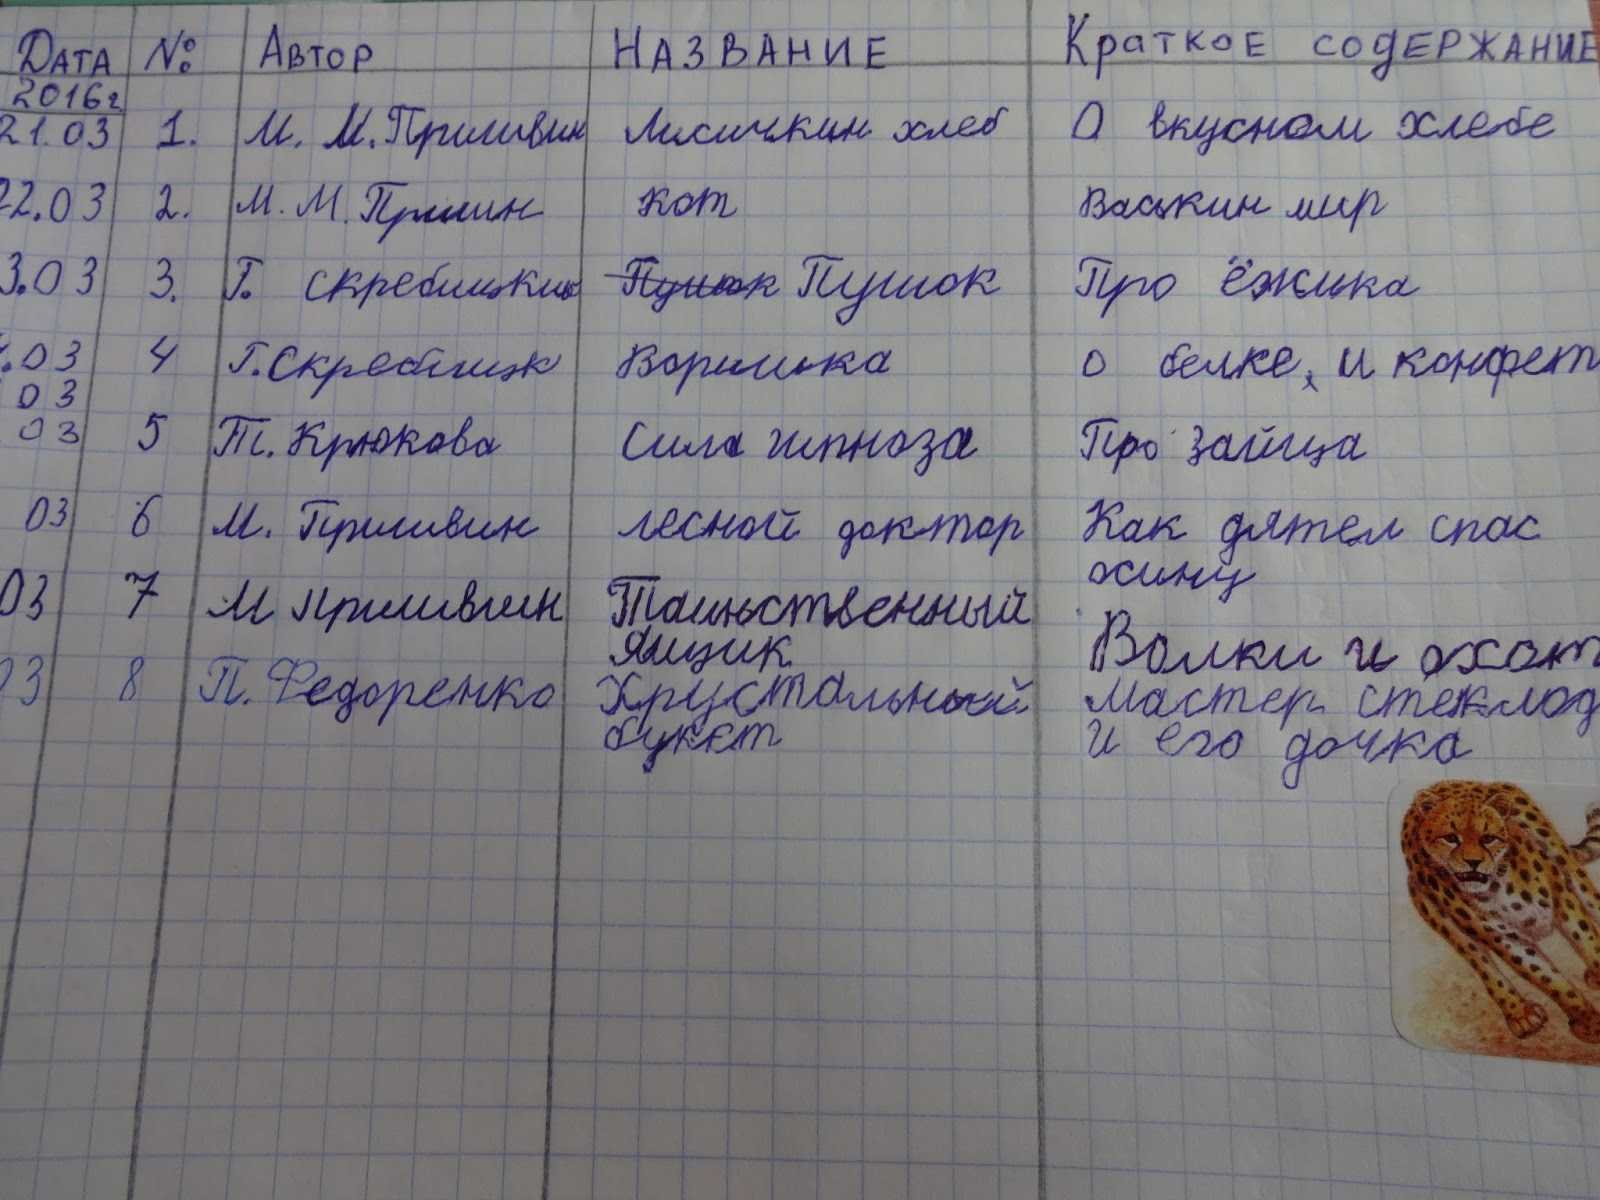 Дата № Автор Название Краткое содержание
2016г
21.03 1. М. М. Пришвин Лисичкин хлеб О вкусном хлебе
22.03 2. М. М. Пршин кот Васькин мир
3.03 3. Г. Скребицкий Пушок Пушок Про ёжика
.03 4 Г. Скребицк Воришка о белке, и конфет
03
03 5 Т. Крюкова Сила гипноза Про зайца
03 6 М. Пришвин лесной доктор Как дятел спас
осину
03 7 М Пришвин Таинственный
ящик Волки и охот
03 8 П. Федоренко Хрустальный Мастер стеклод
букет и его дочка